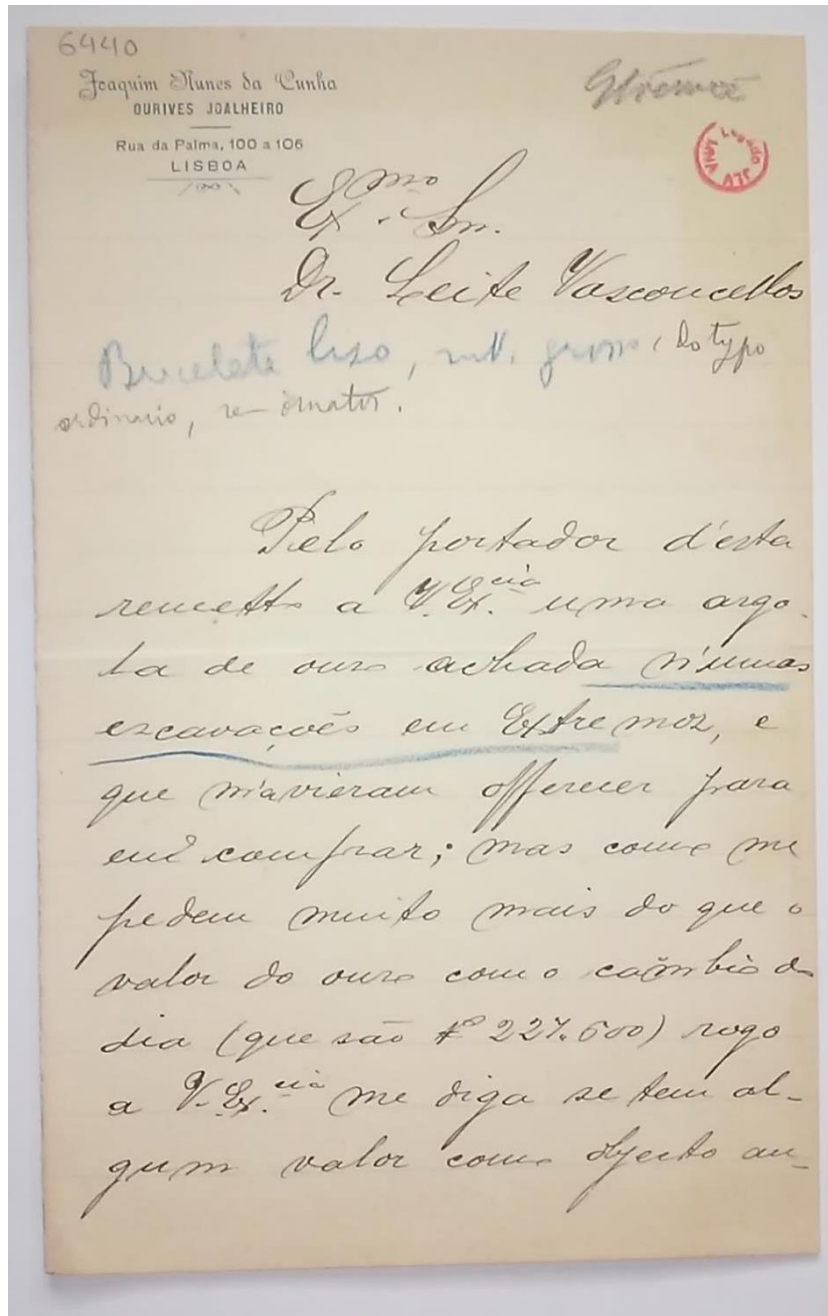 6440
Joaquim Nunes da Cunha
OURIVES JOALHEIRO
Rua da Palma, 100 a 106
LISBOA
Legado JLV MNA
Ex.mo Snr.
Dr. Leite Vasconcellos
Bracelete liso, grosso, do typo
ordinario, sem ornatos.
Pelo portador d'esta
remetto a V. Ex.cia uma argo-
la de ouro achada n'umas
escavações em Extremoz, e
que m'avieramofferecer para
eu comprar; mas como me
pedem muito mais do que o
valor do ouro com o câmbio do
dia (que são 227.600) rogo
a V. Ex.cia me diga se tem al-
gum valor como objecto an-